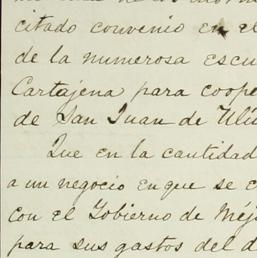 citado convenio en el
de la numerosa escu
Cartajena para coope
de San Juan de Ulú
Que en la cantidad
a un negocio en que se c
con el Gobierno de Méj
para sus gastos del d